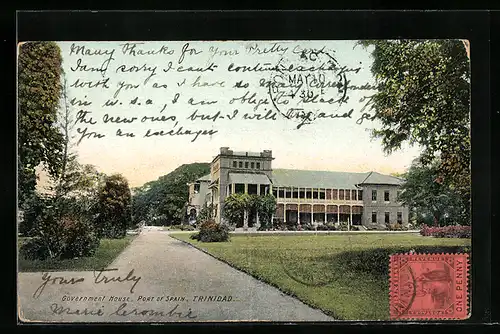 Many Thanks for Your Pretty Card.
I am sorry I cant continue exchanging
with you as I have so many correspondents
in U.S.A. I am obliged to slack
the new ones, but I will try and get
you an exchanger
AC
MA 10
30
Yours truly
Government House, Port of Spain, Trinidad.
Marie
ONE PENNY